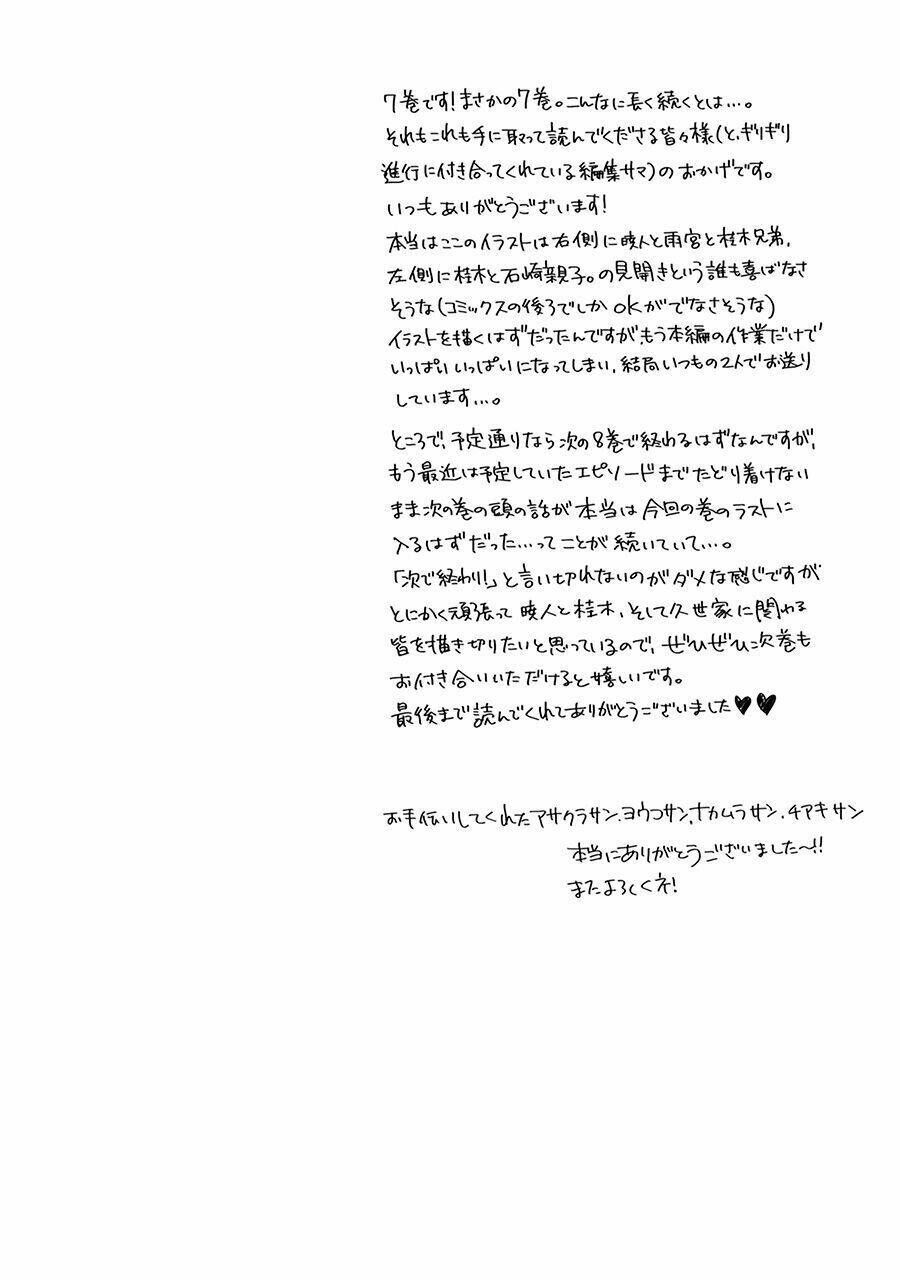 7巻です!まさかの7巻。こんなに長く続くとは…。
それもこれも手に取って読んでくださる皆々様(と、ギリギリ
進行に付き合ってくれている編集サマ)のおかげです。
いつもありがとうございます!
本当はここのイラストは右側に暁人と雨宮と桂木兄弟、
左側に桂木と石崎親子。の見開きという誰も喜ばなさ
そうな(コミックスの後ろでしかOKがでなさそうな)
イラストを描くはずだったんですが、もう本編の作業だけで
いっぱいいっぱいになってしまい、結局いつもの2人でお送り
しています…。
ところで、予定通りなら次の8巻で終わるはずなんですが、
もう最近は予定していたエピソードまでたどり着けない
まま次の巻の頭の話が本当は今回の巻のラストに
入るはずだった…ってことが続いていて…。
「次で終わり!」と言い切れないのがダメな感じですが
とにかく頑張って暁人と桂木、そして久世家に関わる
皆を描き切りたいと思っているので、ぜひぜひ次巻も
お付き合いいただけると嬉しいです。
最後まで読んでくれてありがとうございました♥♥
お手伝いしてくれたアサクラサン、ヨウコサン、ナカムラサン、チアキサン
本当にありがとうございました〜!!
またよろしくネ!